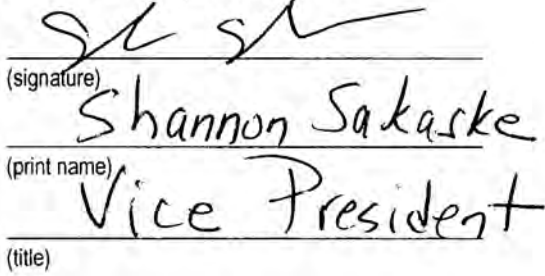 (signature)
Shannon Sakaske
(print name)
Vice President
(title)